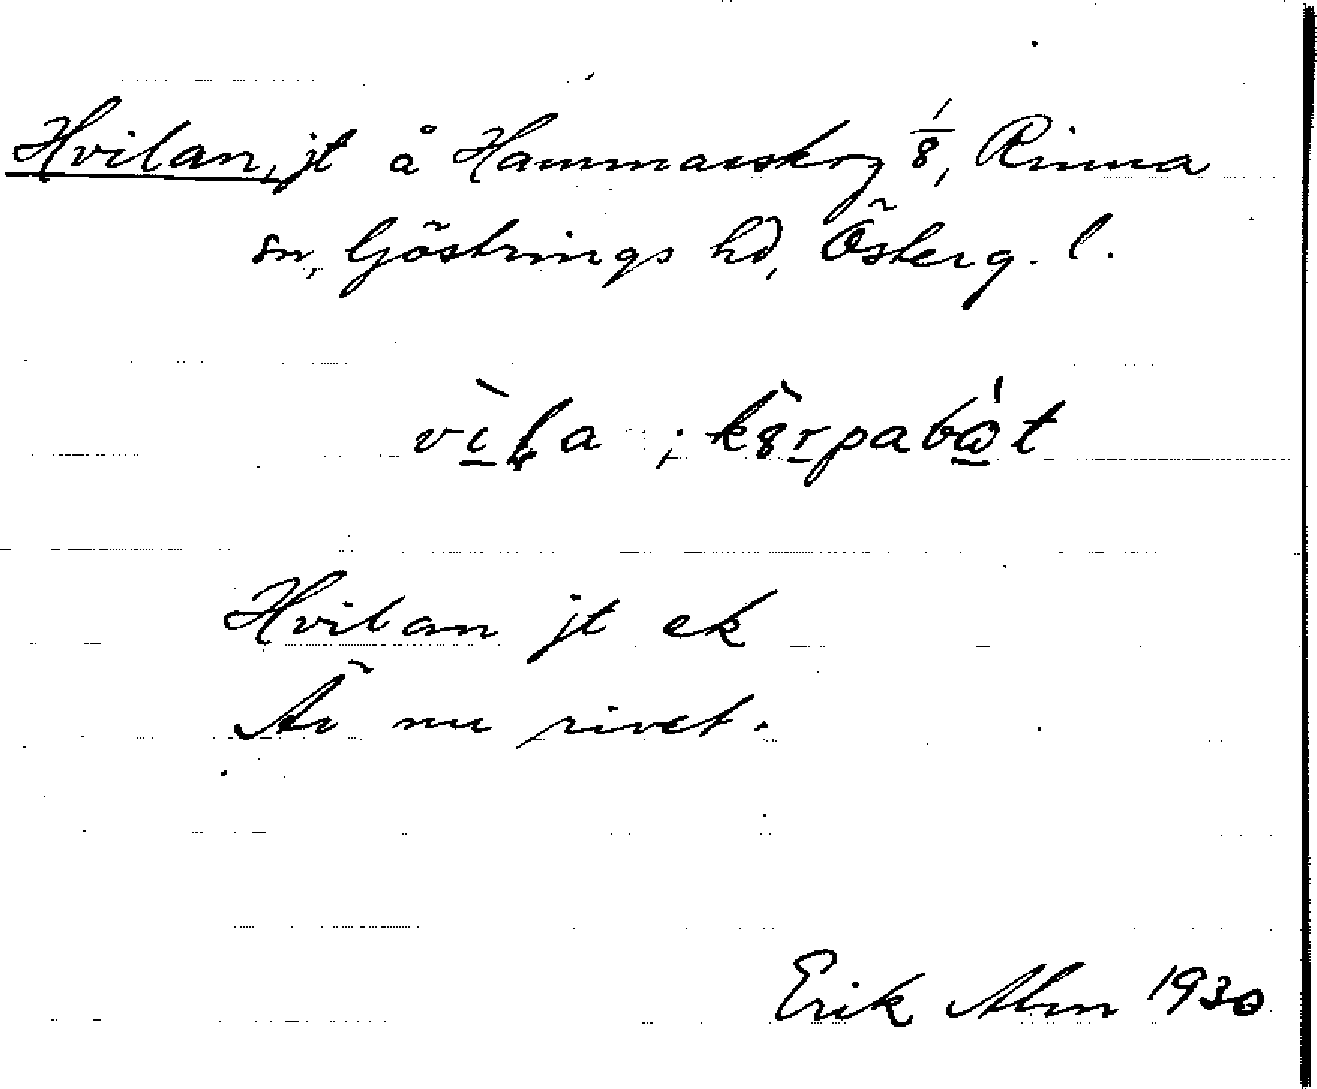 Hvilan, jt å Hammarskog 1/8, Rinna
sn, Göstrings hd, Österg. l.
Hvilan jt ek
Är nu rivet.
Erik Alm 1930